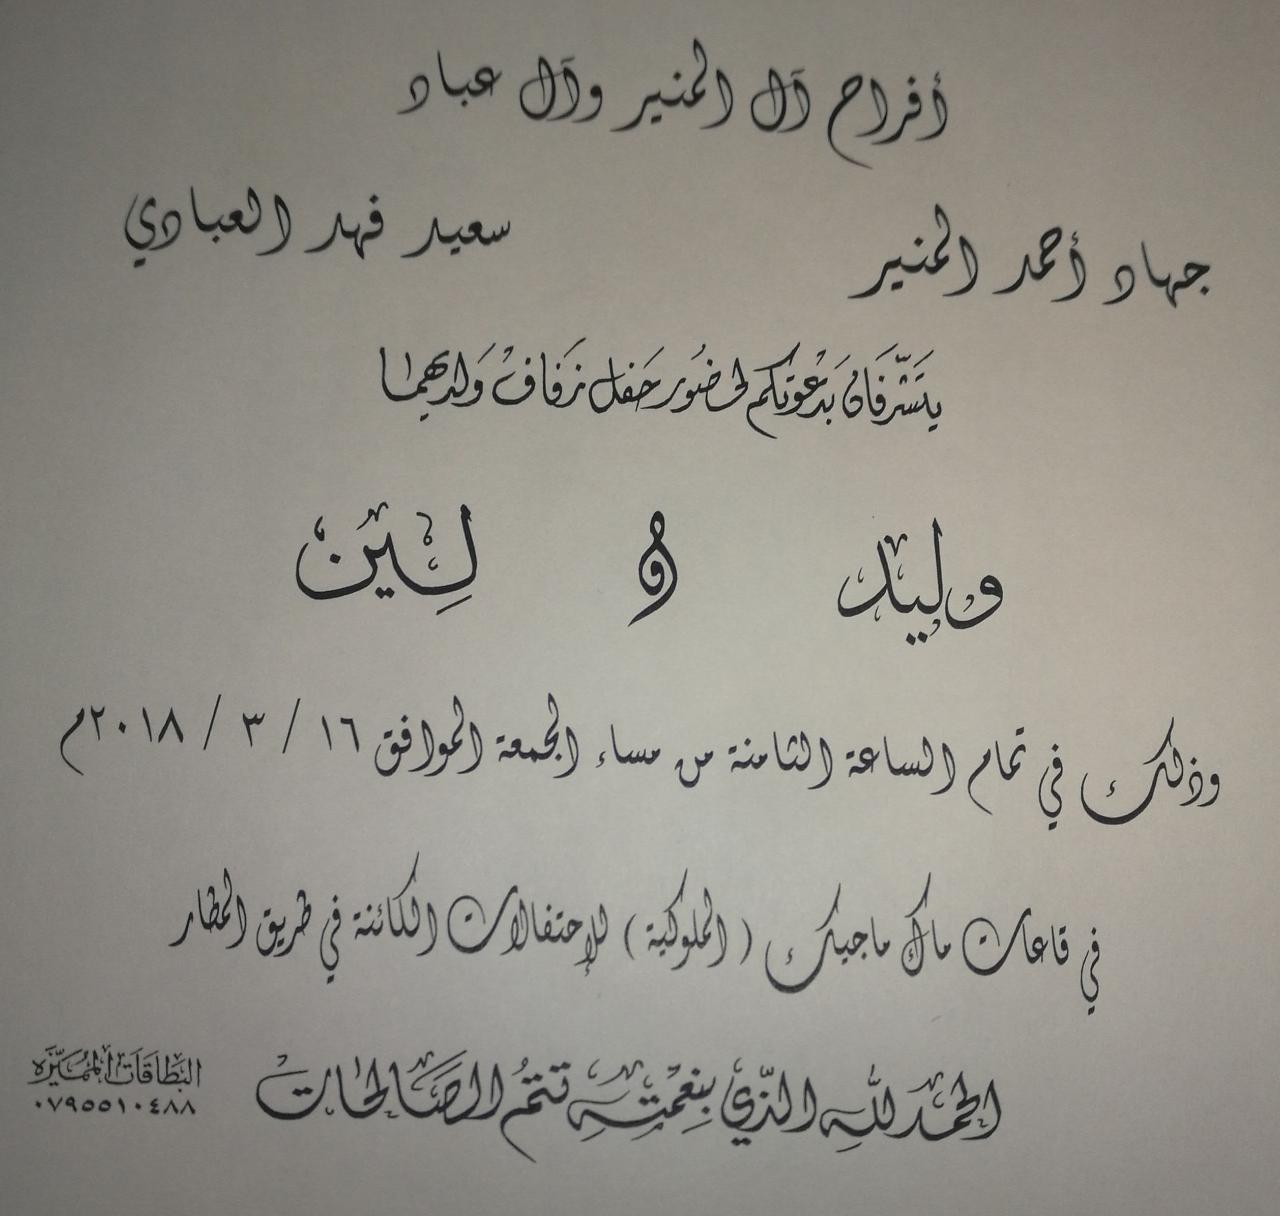 أفراح آل المنير وآل عباد
جهاد أحمد المنير
سعيد فهد العبادي
يتَشَّرفَان بدَعْوتكم لحضُور حَفل زفَاف وَلديهمَا
وليد و لِين
وذلك في تمام الساعة الثامنة من مساء الجمعة الموافق ١٦ / ٣ / ٢٠١٨م
في قاعات ماك ماجيك ( الملوكية ) للإحتفالات الكائنة في طريق المطار
الحمد للهِ الذّي بنِعْمتِهِ تتمُ الصَالحَات
البَطاقَات المُميَّزَه
٠٧٩٥٥١٠٤٨٨